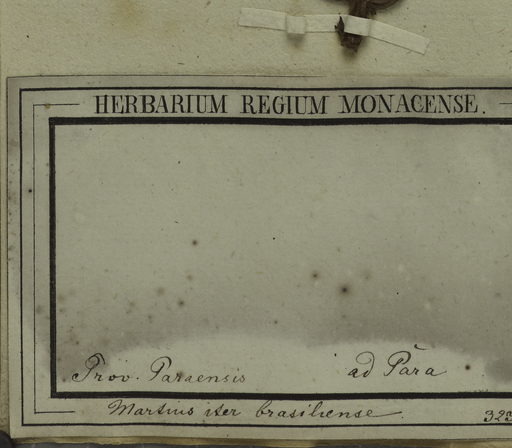 HERBARIUM REGIUM MONACENSE.
Prov. Paraensis ad Pàra
Martius iter brasiliense.